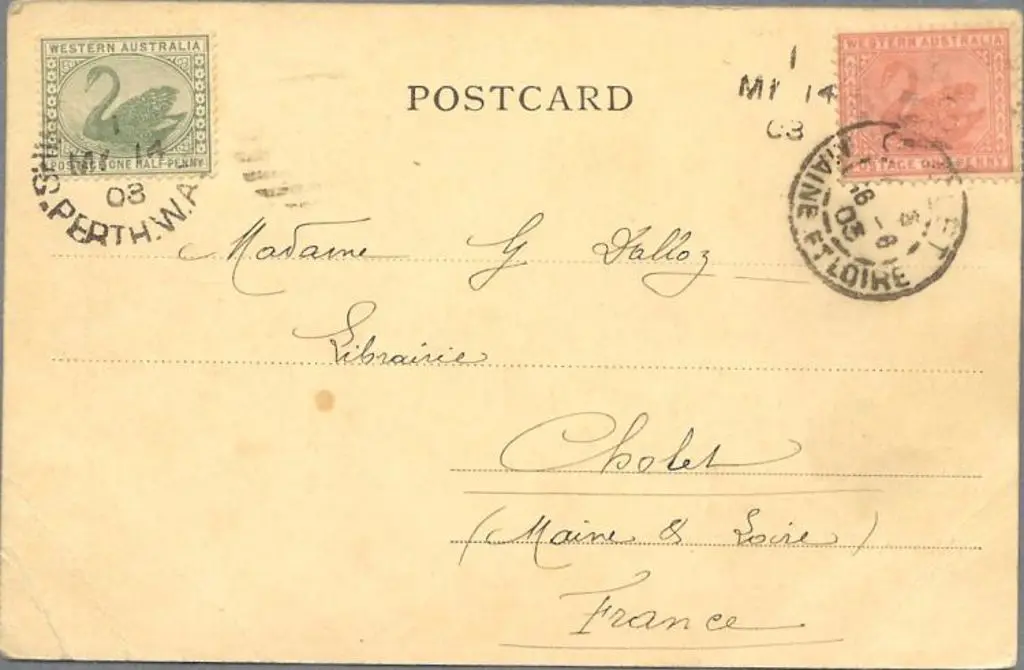 WESTERN AUSTRALIA
POSTAGE ONE HALF-PENNY
1
14
03
PERTH.W.A
POSTCARD
1
14
03
WESTERN AUSTRALIA
POSTAGE ONE PENNY
MAINE ET LOIRE
03
Madame G Dalloz
Librairie
Cholet
(Maine & Loire)
France